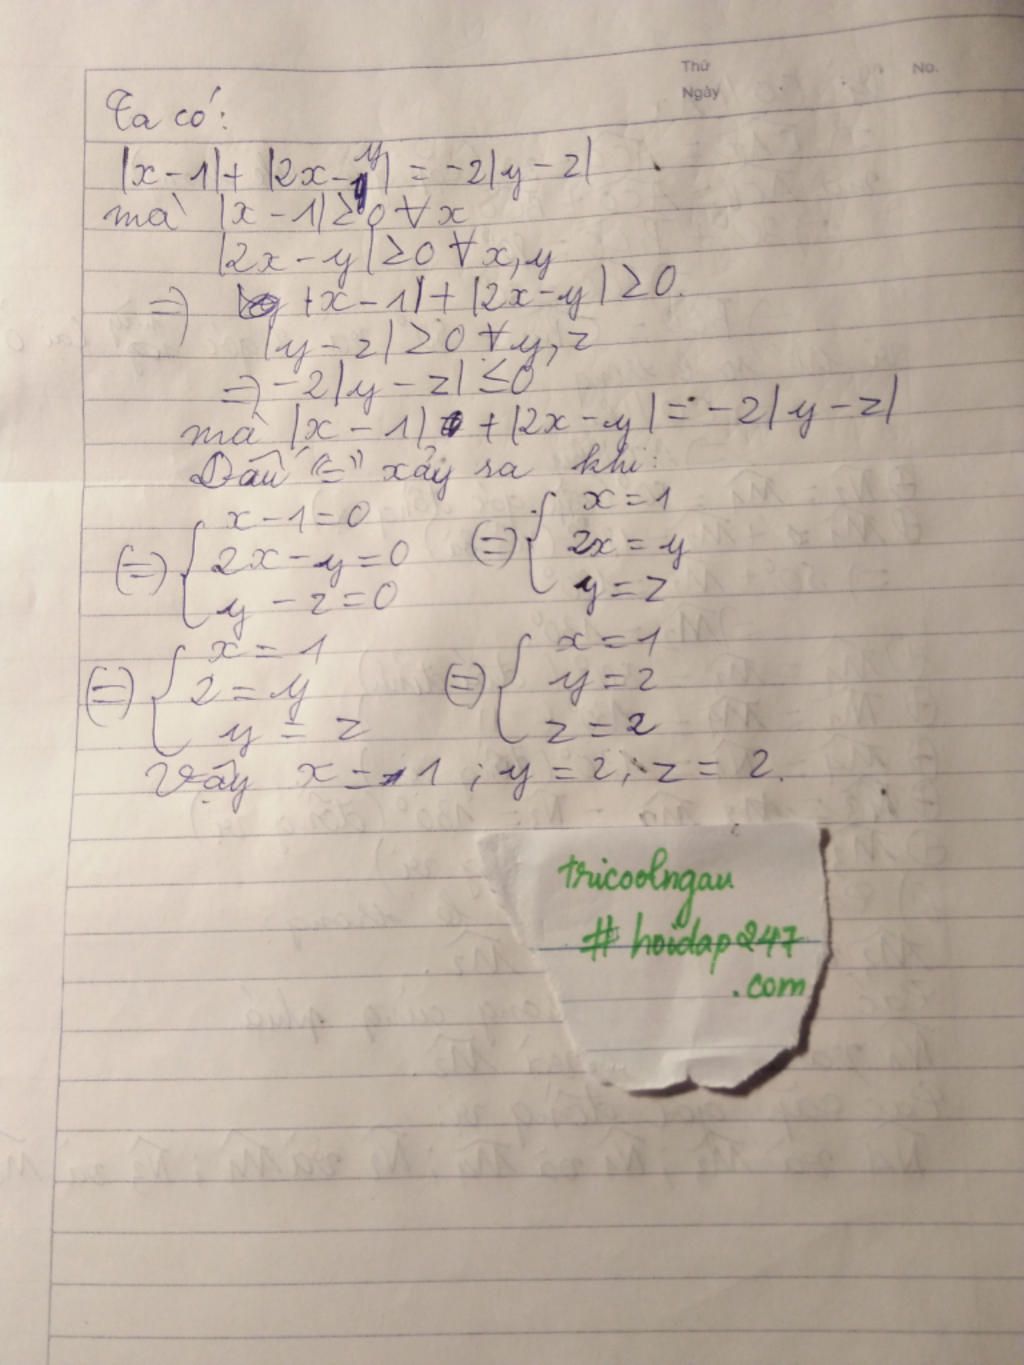 Thứ
No.
Ngày
Ta có:
|x-1|+ |2x-y| = -2|y-z|
mà |x-1|≥0 ∀x
|2x-y|≥0 ∀x,y
=) |x-1|+|2x-y|≥0.
|y-z|≥0 ∀y,z
=) -2|y-z|≤0
mà |x-1| + |2x-y|=-2|y-z|
Dấu "=" xảy ra khi:
(=) { x-1=0 (=) { x=1
2x-y=0 2x=y
y-z=0 y=z
(=) { x=1 (=) { x=1
2=y y=2
y=z z=2
Vậy x=1; y=2; z=2.
tricoolngau
# hoidap247
.com